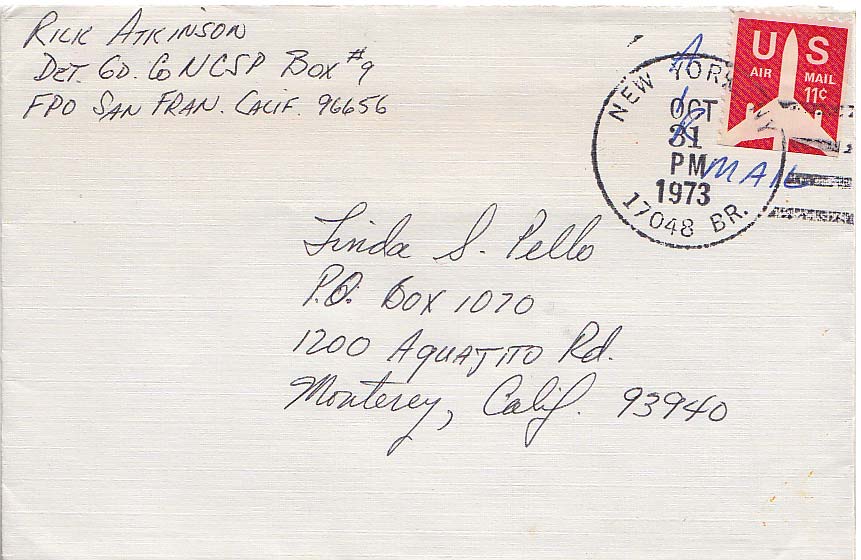 Rick Atkinson
Det. GD. Co NCSP Box #9
FPO San Fran. Calif. 96656
U S
AIR MAIL
11¢
NEW YORK NY
OCT
31
PM
1973
17048 BR.
Air
MAIL
Linda S. Pello
P.O. Box 1070
1200 Aquajito Rd.
Monterey, Calif. 93940